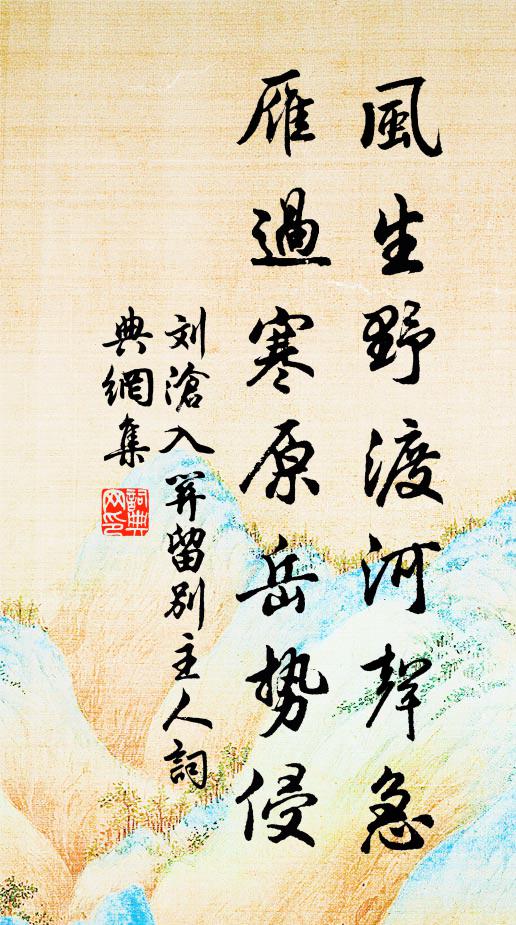 風生野渡河聲急
雁過寒原岳势侵
刘滄入関留別主人詞
典網集
詞典
网印